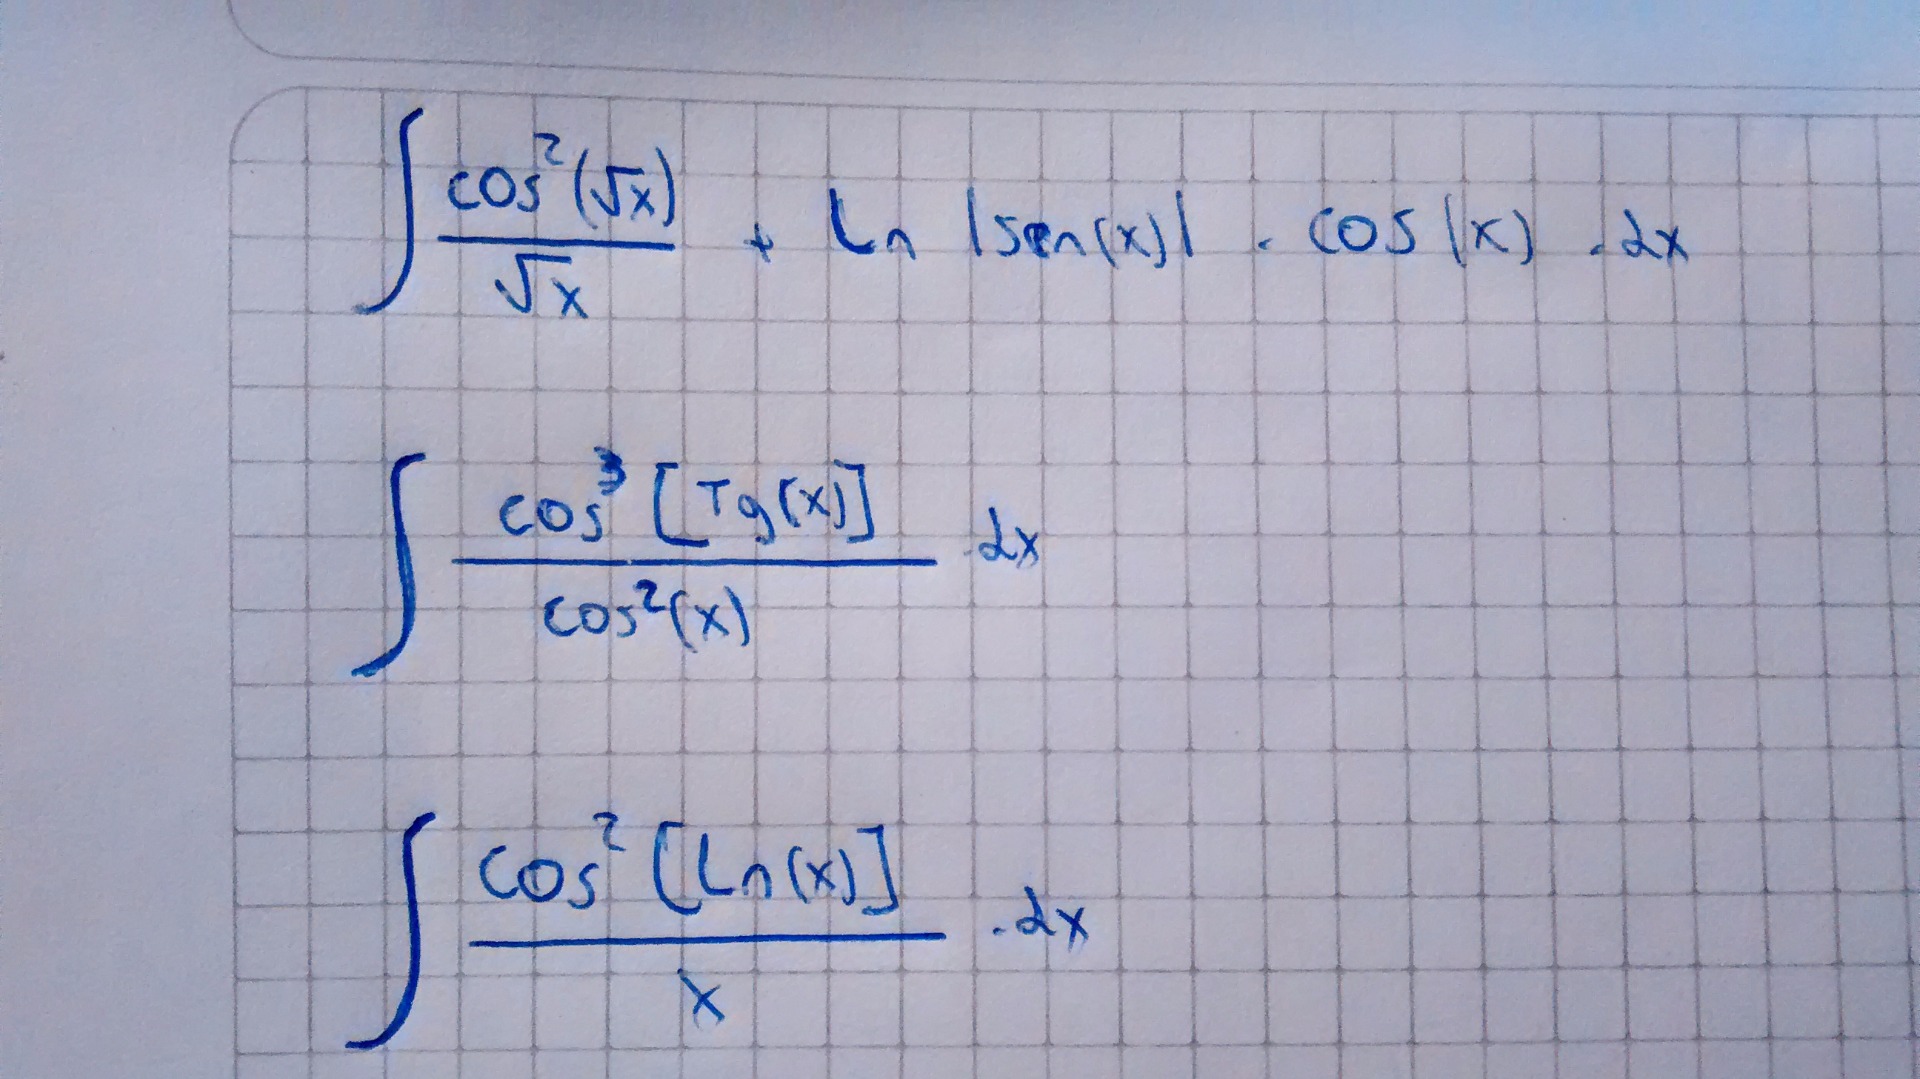 ∫ cos²(√x)/√x + Ln |sen(x)| · cos(x) · dx
∫ cos³[Tg(x)]/cos²(x) · dx
∫ cos²[Ln(x)]/x · dx